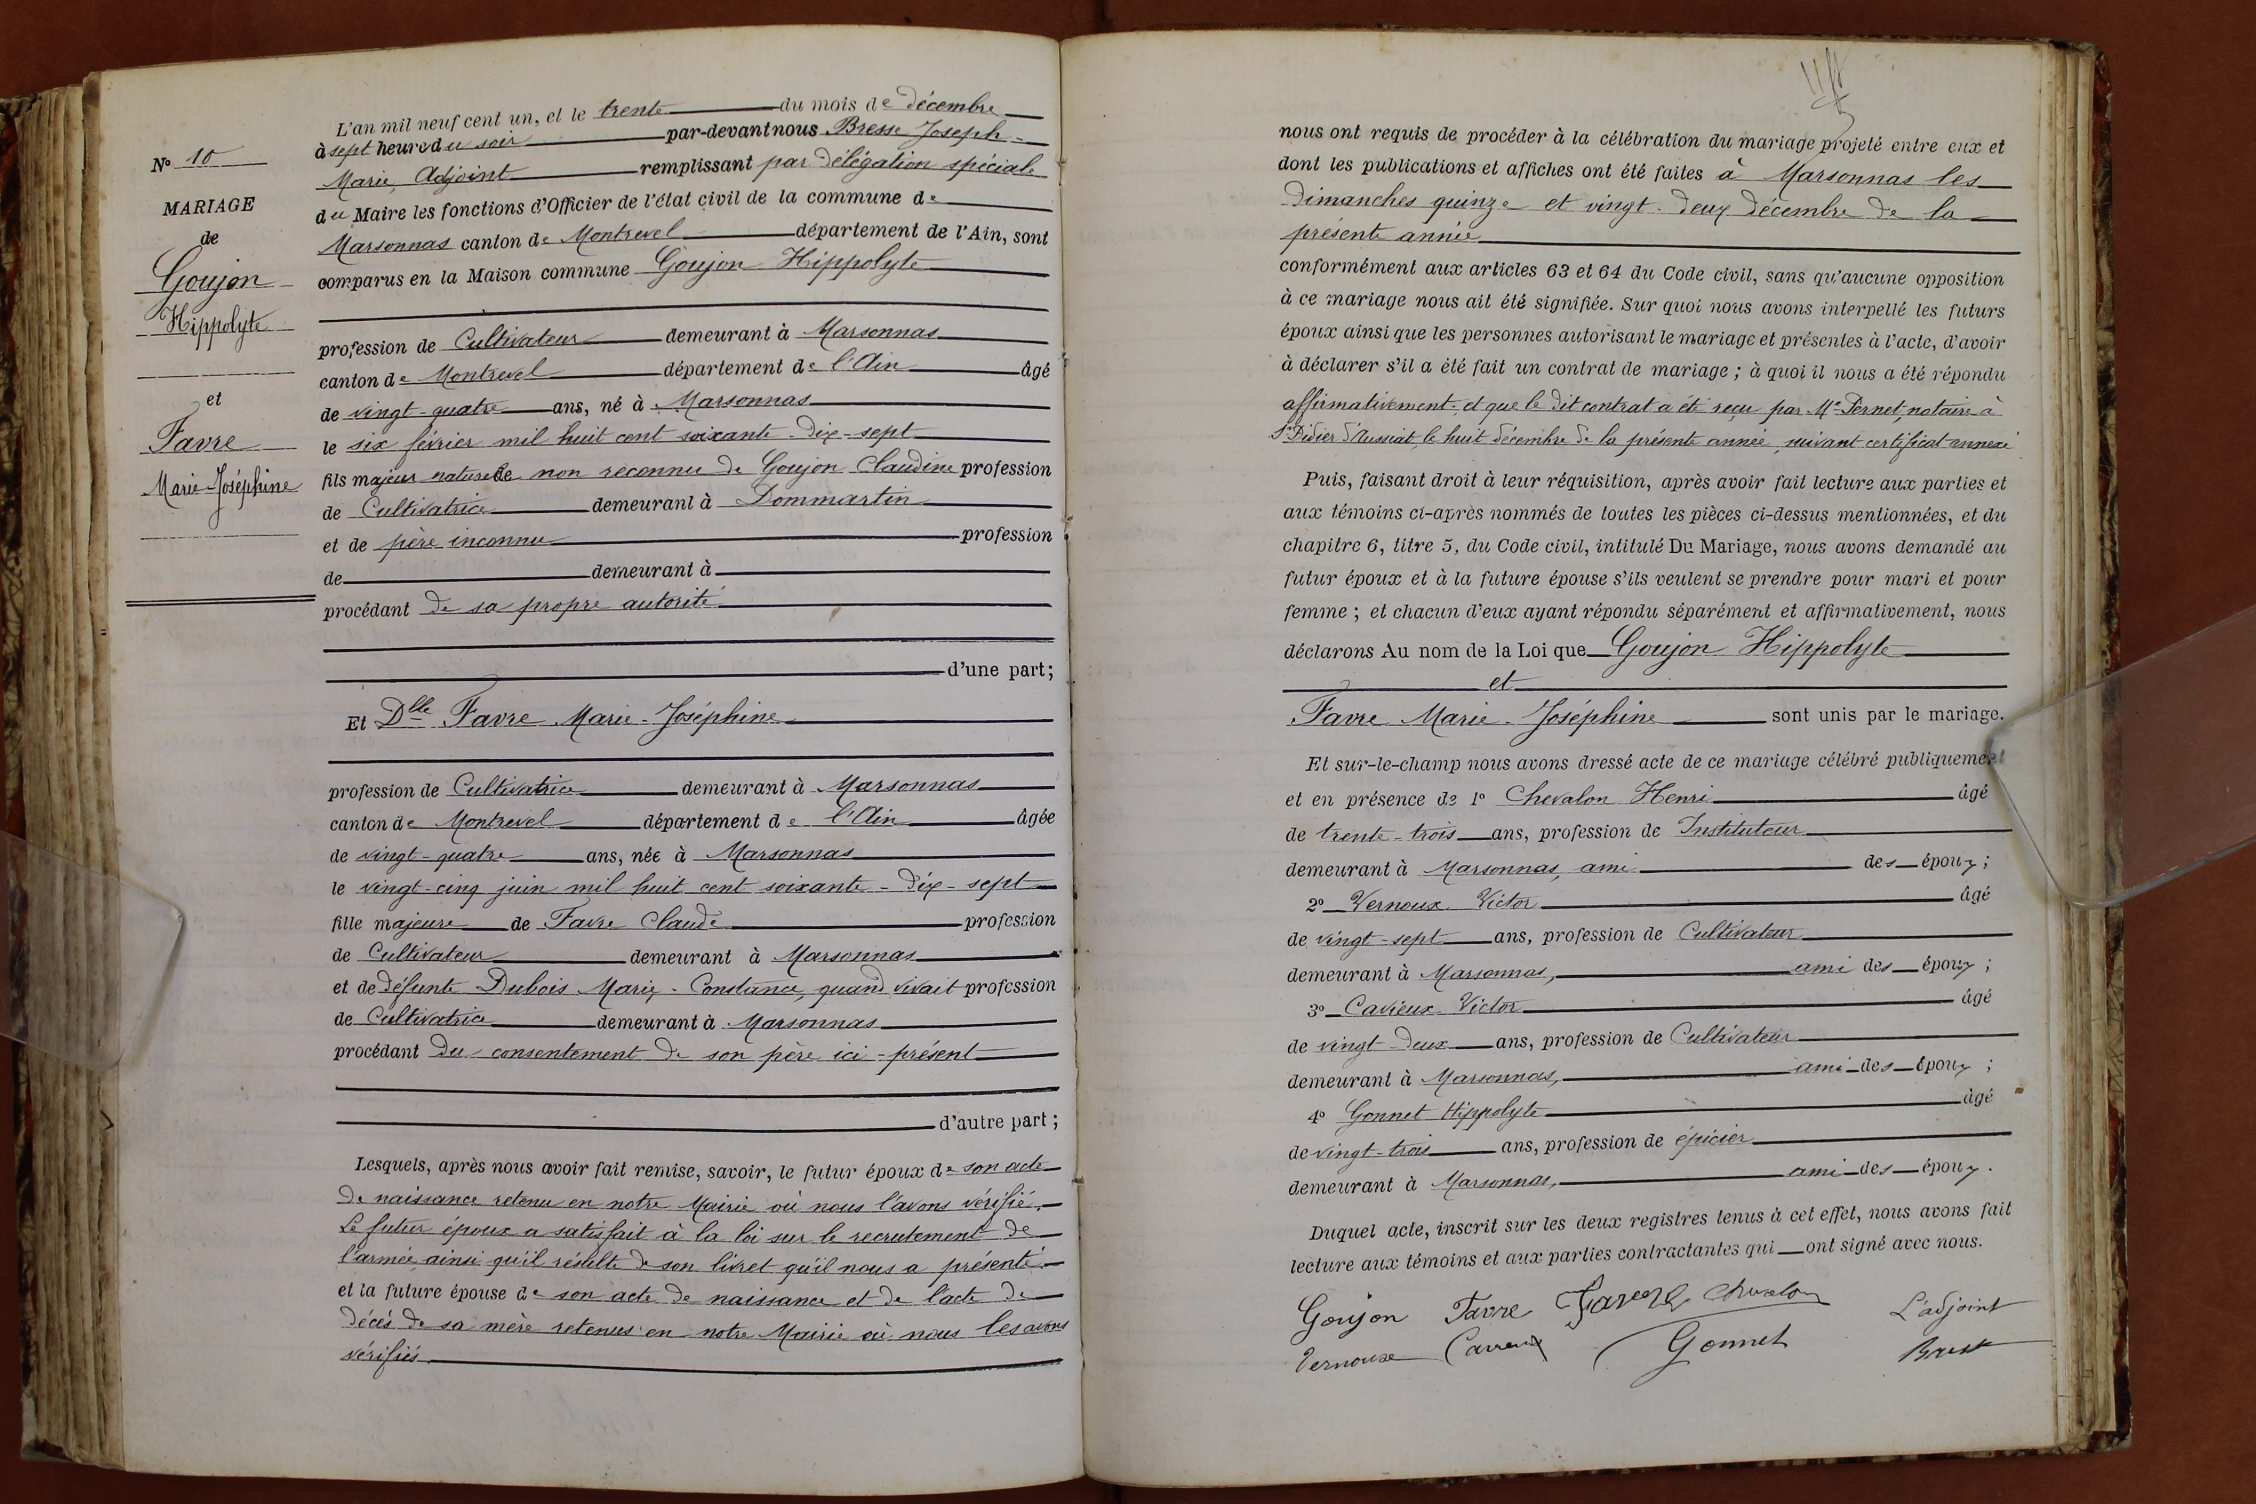 N° 10
MARIAGE
de
Goujon
Hippolyte
et
Favre
Marie-Joséphine
L'an mil neuf cent un, et le trente du mois de décembre
à sept heures du soir par-devant nous Bresse Joseph-
Marie, Adjoint remplissant par délégation spéciale
du Maire les fonctions d'Officier de l'état civil de la commune de
Marsonnas canton de Montrevel département de l'Ain, sont
comparus en la Maison commune Goujon Hippolyte
profession de Cultivateur demeurant à Marsonnas
canton de Montrevel département de l'Ain âgé
de vingt-quatre ans, né à Marsonnas
le six février mil huit cent soixante-dix-sept
fils majeur naturel non reconnu de Goujon Claudine profession
de Cultivatrice demeurant à Dommartin
et de père inconnu profession
de demeurant à
procédant de sa propre autorité
d'une part;
Et Dlle Favre Marie-Joséphine
profession de Cultivatrice demeurant à Marsonnas
canton de Montrevel département de l'Ain âgée
de vingt-quatre ans, née à Marsonnas
le vingt-cinq juin mil huit cent soixante-dix-sept
fille majeure de Favre Claude profession
de Cultivateur demeurant à Marsonnas
et de défunte Dubois Marie-Constance, quand vivait profession
de Cultivatrice demeurant à Marsonnas
procédant du consentement de son père ici-présent
d'autre part;
Lesquels, après nous avoir fait remise, savoir, le futur époux de son acte
de naissance retenu en notre Mairie où nous l'avons vérifié.
Le futur époux a satisfait à la loi sur le recrutement de
l'armée, ainsi qu'il résulte de son livret qu'il nous a présenté.
et la future épouse de son acte de naissance et de l'acte de
décès de sa mère retenus en notre Mairie où nous les avons
vérifiés.
nous ont requis de procéder à la célébration du mariage projeté entre eux et
dont les publications et affiches ont été faites à Marsonnas les
dimanches quinze et vingt-deux décembre de la
présente année
conformément aux articles 63 et 64 du Code civil, sans qu'aucune opposition
à ce mariage nous ait été signifiée. Sur quoi nous avons interpellé les futurs
époux ainsi que les personnes autorisant le mariage et présentes à l'acte, d'avoir
à déclarer s'il a été fait un contrat de mariage; à quoi il nous a été répondu
affirmativement et que le dit contrat a été reçu par Me Pernet, notaire à
St Didier d'Aussiat, le huit décembre de la présente année, suivant certificat annexé
Puis, faisant droit à leur réquisition, après avoir fait lecture aux parties et
aux témoins ci-après nommés de toutes les pièces ci-dessus mentionnées, et du
chapitre 6, titre 5, du Code civil, intitulé Du Mariage, nous avons demandé au
futur époux et à la future épouse s'ils veulent se prendre pour mari et pour
femme; et chacun d'eux ayant répondu séparément et affirmativement, nous
déclarons Au nom de la Loi que Goujon Hippolyte
et
Favre Marie-Joséphine sont unis par le mariage.
Et sur-le-champ nous avons dressé acte de ce mariage célébré publiquement
et en présence de 1° Chevalon Henri âgé
de trente-trois ans, profession de Instituteur
demeurant à Marsonnas, ami des époux;
2° Vernoux Victor âgé
de vingt-sept ans, profession de Cultivateur
demeurant à Marsonnas, ami des époux;
3° Cavieux Victor âgé
de vingt-deux ans, profession de Cultivateur
demeurant à Marsonnas, ami des époux;
4° Gonnet Hippolyte âgé
de vingt-trois ans, profession de épicier
demeurant à Marsonnas, ami des époux.
Duquel acte, inscrit sur les deux registres tenus à cet effet, nous avons fait
lecture aux témoins et aux parties contractantes qui ont signé avec nous.
Goujon Favre Chevalon L'adjoint
Vernoux Gonnet